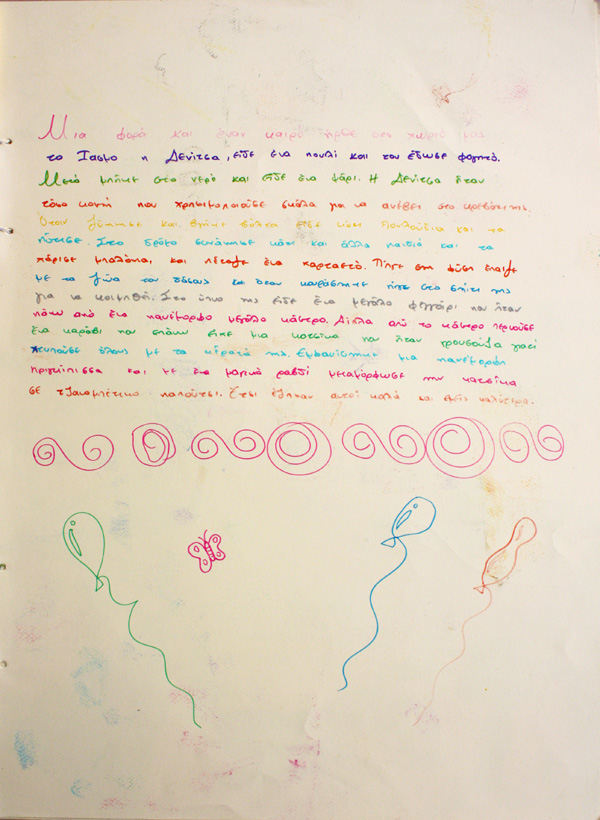 Μια φορά και έναν καιρό ήρθε στο χωριό μας
το Ίασμο η Δενίτσα, είδε ένα πουλί και του έδωσε φαγητό.
Μετά μπήκε στο νερό και είδε ένα ψάρι. Η Δενίτσα ήταν
τόσο κοντή που χρησιμοποιούσε σκάλα για να ανέβει στο κρεβάτι της.
Όταν ξύπνησε και βγήκε βόλτα είδε κάτι λουλούδια και τα
πότισε. Στο δρόμο συνάντησε κάτι και άλλα παιδιά και τα
χάρισε μπαλόνια, και πέταξε ένα χαρταετό. Πήγε στη φύση έπαιξε
με τα ζώα του δάσους και όταν κουράστηκε πήγε στο σπίτι της
για να κοιμηθεί. Στο ύπνο της είδε ένα μεγάλο φεγγάρι που ήταν
πάνω από ένα πανέμορφο μεγάλο κάστρο. Δίπλα από το κάστρο περνούσε
ένα καράβι που επάνω είχε μια κατσίκα που ήταν γρουσούζα γιατί
χτυπούσε όλους με τα κέρατά της. Εμφανίστηκε μια πανέμορφη
πριγκίπισσα και με ένα μαγικό ραβδί μεταμόρφωσε την κατσίκα
σε παπούτσι. Έτσι έζησαν αυτοί καλά και εμείς καλύτερα.